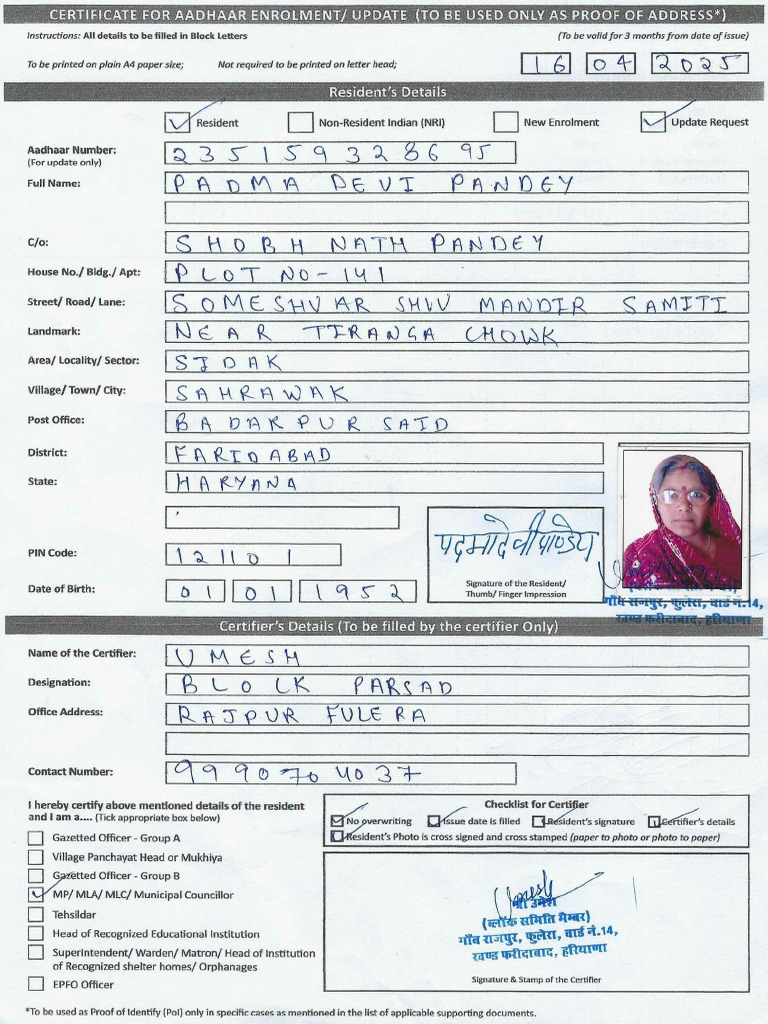 CERTIFICATE FOR AADHAAR ENROLMENT/ UPDATE (TO BE USED ONLY AS PROOF OF ADDRESS*)
Instructions: All details to be filled in Block Letters (To be valid for 3 months from date of issue)
To be printed on plain A4 paper size; Not required to be printed on letter head; 16 04 2025
Resident's Details
Resident Non-Resident Indian (NRI) New Enrolment Update Request
Aadhaar Number: 235159328695
(For update only)
Full Name: PADMA DEVI PANDEY
C/o: SHOBH NATH PANDEY
House No./ Bldg./ Apt: PLOT NO-141
Street/ Road/ Lane: SOMESHVAR SHIV MANDIR SAMITI
Landmark: NEAR TIRANGA CHOWK
Area/ Locality/ Sector: SIDAK
Village/ Town/ City: SAHRAWAK
Post Office: BADARPUR SAID
District: FARIDABAD
State: HARYANA
PIN Code: 121101
पदमादेवीपाण्डेय
Signature of the Resident/
Thumb/ Finger Impression
Date of Birth: 01 01 1952
गाँव राजपुर, फुलेरा, वार्ड नं.14,
खण्ड फरीदाबाद, हरियाणा
Certifier's Details (To be filled by the certifier Only)
Name of the Certifier: UMESH
Designation: BLOCK PARSAD
Office Address: RAJPUR FULERA
Contact Number: 9990704037
I hereby certify above mentioned details of the resident
and I am a.... (Tick appropriate box below)
Gazetted Officer - Group A
Village Panchayat Head or Mukhiya
Gazetted Officer - Group B
MP/ MLA/ MLC/ Municipal Councillor
Tehsildar
Head of Recognized Educational Institution
Superintendent/ Warden/ Matron/ Head of Institution
of Recognized shelter homes/ Orphanages
EPFO Officer
Checklist for Certifier
No overwriting Issue date is filled Resident's signature Certifier's details
Resident's Photo is cross signed and cross stamped (paper to photo or photo to paper)
Umesh
श्री उमेश
(ब्लॉक समिति मैम्बर)
गाँव राजपुर, फुलेरा, वार्ड नं.14,
खण्ड फरीदाबाद, हरियाणा
Signature & Stamp of the Certifier
*To be used as Proof of Identify (PoI) only in specific cases as mentioned in the list of applicable supporting documents.